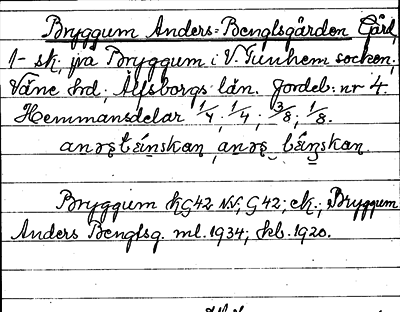 Bryggum Anders-Benglsgården Gård,
1- sk. fra Bryggum i V. Tunhem socken,
Väne hd, Älfsborgs län. Jordeb: nr 4.
Hemmansdelar 1/4, 1/4, 3/8, 1/8.
Bryggum kG42 NV; G42; ek.; Bryggum
Anders Benglsg. ml. 1934; skb. 1920.